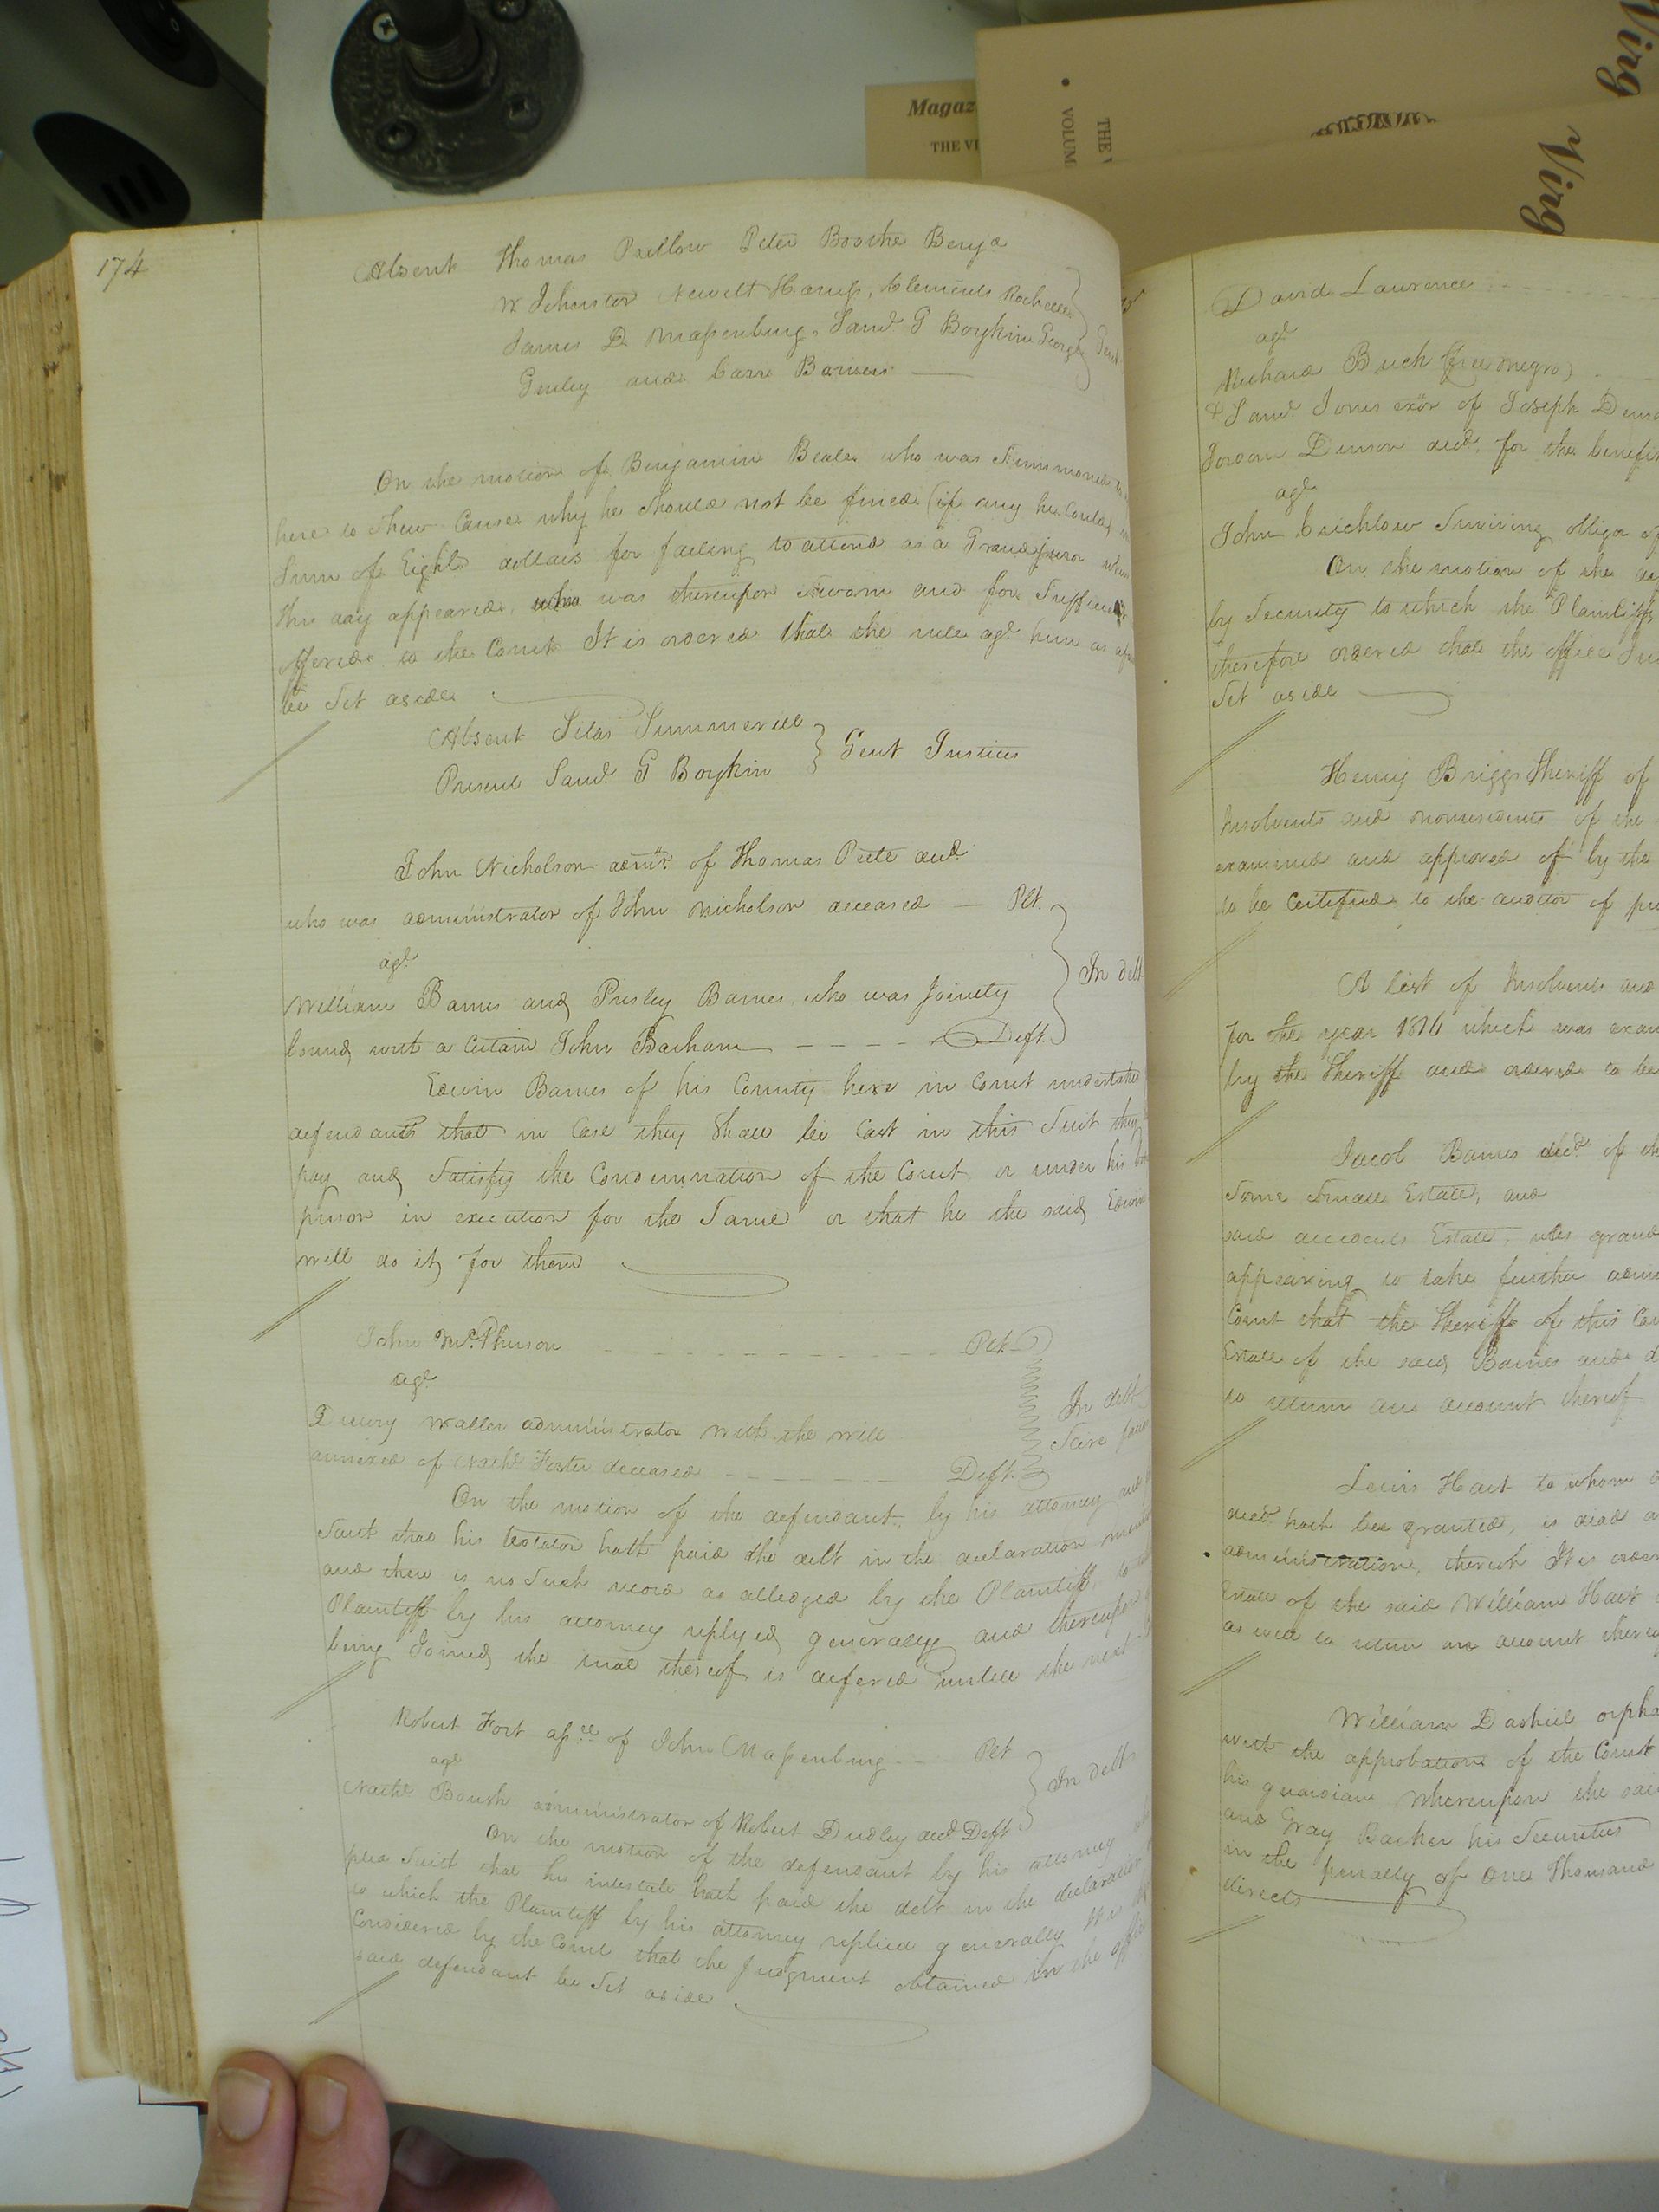 Magaz
THE VI
THE
VOLUM
Virg
Virg
174
Absent Thomas Pretlow Peter Boothe Benja
W Johnston Newitt Harris, Clements Rochelle
James D Massenburg, Saml. G Boykin George
Gurley and Carr Barnes
On the motion of Benjamin Beale who was Summoned
here to Shew Cause why he Should not be fined (if any he Could)
Sum of Eight dollars for failing to attend as a Grandjuror when
this day appeared, who was thereupon Sworn and for Sufficient
offered to the Court It is ordered that the rule agt. him as
be Set aside
Absent Silas Summerell
Present Saml. G Boykin } Gent. Justices
John Nicholson admr. of Thomas Peete decd.
who was administrator of John Nicholson deceased — Plt.
agt.
William Barnes and Presley Barnes who was Jointly
bound with a Certain John Barham - - - - Deft.
In debt
Edwin Barnes of his County here in Court undertakes
defendants that in Case they Shall be Cast in this Suit they
pay and Satisfy the Condemnation of the Court or under his
prison in execution for the Same or that he the said Edwin
will do it for them
John McPherson - - - Plt
agt.
Drewry Waller administrator with the will
annexed of Nathl. Foster deceased - - - Deft.
In debt
Scire
On the motion of the defendant, by his attorney
Saith that his testator hath paid the debt in the declaration
and there is no Such record as alledged by the Plaintiff, to
Plaintiff by his attorney replyed generally and thereupon
being Joined, the trial thereof is defered untill the next
Robert Fort assee. of John Massenburg — Plt
agt.
Nathl. Boush administrator of Robert Dudley decd. Deft
In debt
On the motion of the defendant by his attorney
plea Saith that his intestate hath paid the debt in the declaration
to which the Plaintiff by his attorney replied generally It is
Considered by the Court that the Judgment obtained in the office
said defendant be Set aside
David Lawrence
agt.
Richard Buch (free negro)
& Saml. Jones exor of Joseph
Jordan Denson decd. for the benefit
agt.
John Crichlow Surviving obligor of
On the motion of the
by Security to which the Plaintiffs
therefore ordered that the office
Set aside
Henry Briggs Sheriff of
Insolvents and nonresidents of the
examined and approved of by the
to be Certified to the auditor of
A list of Insolvents and
for the year 1816 which was
by the Sheriff and ordered to be
Jacob Barnes decd. of
Some Small Estate, and
said deceaseds Estate, was
appearing to take further
Court that the Sheriff of this
Estate of the said Barnes and
to return an account thereof
Lewis Hart to whom
decd. hath been granted, is dead
administration thereof It is
Estate of the said William Hart
as well to return an account
William Dashiel
with the approbation of the Court
his guardian Whereupon the said
and Gray Barker his Securities
in the penalty of One Thousand
directs